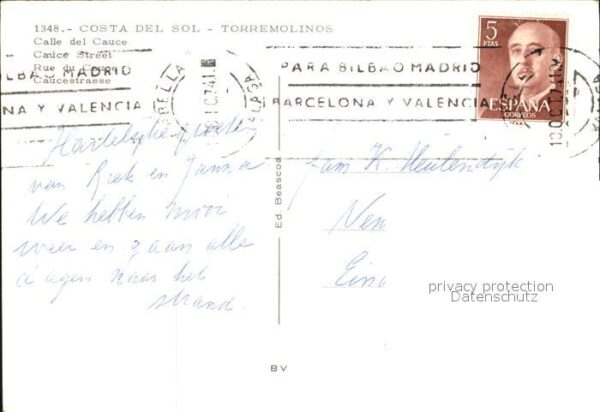 1348.- COSTA DEL SOL - TORREMOLINOS
Calle del Cauce
Cauce Street
Rue du Cauce
Caucestrasse
BILBAO MADRID
NA Y VALENCIA
PARA BILBAO MADRID
BARCELONA Y VALENCIA
5
PTAS
ESPAÑA
CORREOS
Hartelijke groeten
van Roek en Janna
We hebben mooi
weer en gaan alle
dagen naar het
strand.
Ed. Beascoa
Fam K. Meulendijk
Ein
privacy protection
Datenschutz
BV